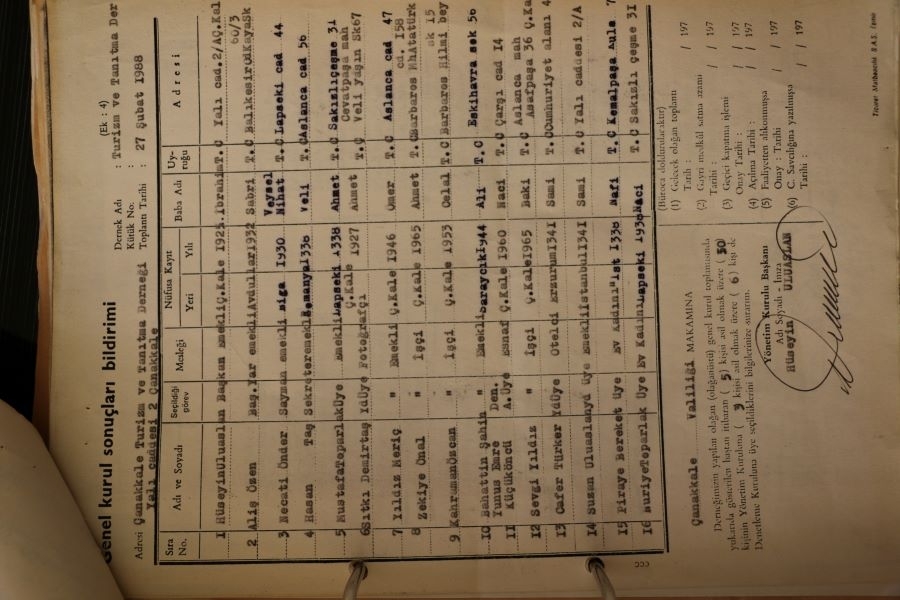 (Ek : 4)
Genel kurul sonuçları bildirimi
Dernek Adı : Turizm ve Tanıtma Der
Kütük No. :
Toplantı Tarihi : 27 Şubat 1988
Adresi Çanakkale Turizm ve Tanıtma Derneği
Yalı caddesi 2 Çanakkale
Sıra No. Adı ve Soyadı Seçildiği görev Mesleği Nüfusa Kayıt Yeri Yılı Baba Adı Uyruğu Adresi
1 HüseyinUluaslan Başkan Emekli Ç.Kale 1925 İbrahim T.C Yalı cad.2/AÇ.Kal
60/3
2 Aliş Özen Baş.Yar emekli 1932 Sabri T.C
3 Necati Önder Sayman emekli Biga 1930 Veysel Nihat T.C Lapseki cad 44
4 Hasan Taş Sekreter emekli 1338 Veli T.C Aslanca cad 56
5 MustafaToparlak Üye Emekli Lapseki 1338 Ahmet T.C Sakızlıçeşme 31
Cevatpaşa mah
6 Sıtkı Demirtaş YdÜye Fotoğrafçı Ç.Kale 1927 Ahmet T.C Veli yaşın Sk67
7 Yıldız Meriç " Emekli Ç.Kale 1946 Ömer T.C Aslanca cad 47
cd. 158
8 Zekiye Önal " İşçi Ç.Kale 1965 Ahmet T.C Barbaros MhAtatürk
sk 15
9 KahramanÖzcan " İşçi Ç.Kale 1953 Celal T.C Barbaros Hilmi bey
10 Bahattin Şahin " Emekli 1944 Ali T.C Eskihavra sok 56
11 Yunus Emre Küçükömcü Den. A.Üye Esnaf Ç.Kale 1960 Naci T.C Çarşı cad 14
Aslanca mah
12 Sevgi Yıldız " İşçi Ç.Kale1965 Baki T.C Asafpaşa 36 Ç.Ka
13 Cafer Türker YdÜye Otelci Erzurum1341 Sami T.C Cumhuriyet alanı 4
14 Suzan Uluaslan yd üye Emekli İstanbul1341 Sami T.C Yalı caddesi 2/A
15 Piraye Bereket üye Ev Kadını İst 1328 Nafi T.C Kemalpaşa
16 NuriyeToparlak Üye Ev Kadını Lapseki 1930 Naci T.C Sakızlı çeşme 31
Çanakkale Valiliği MAKAMINA
Derneğimizin yapılan olağan (olağanüstü) genel kurul toplantısında
yukarıda gösterilen baştan itibaren ( 5) kişisi asil olmak üzere ( 10
kişinin Yönetim Kuruluna ( 3 kişisi asil olmak üzere ( 6) kişi de
Denetleme Kuruluna üye seçildiklerini bilgilerinize sunarım.
Yönetim Kurulu Başkanı
Adı Soyadı - İmza
Hüseyin ULUASLAN
(Büroca doldurulacaktır)
(1) Gelecek olağan toplantı
Tarih : / / 197
(2) Gayri menkûl satma azami
Tarihi : / / 197
(3) Geçici kapatma işlemi
Onay Tarihi : / / 197
(4) Açılma Tarihi : / / 197
(5) Faaliyetten alıkonmuşsa
Onay : Tarihi / / 197
(6) C. Savcılığına yazılmışsa
Tarihi : / / 197